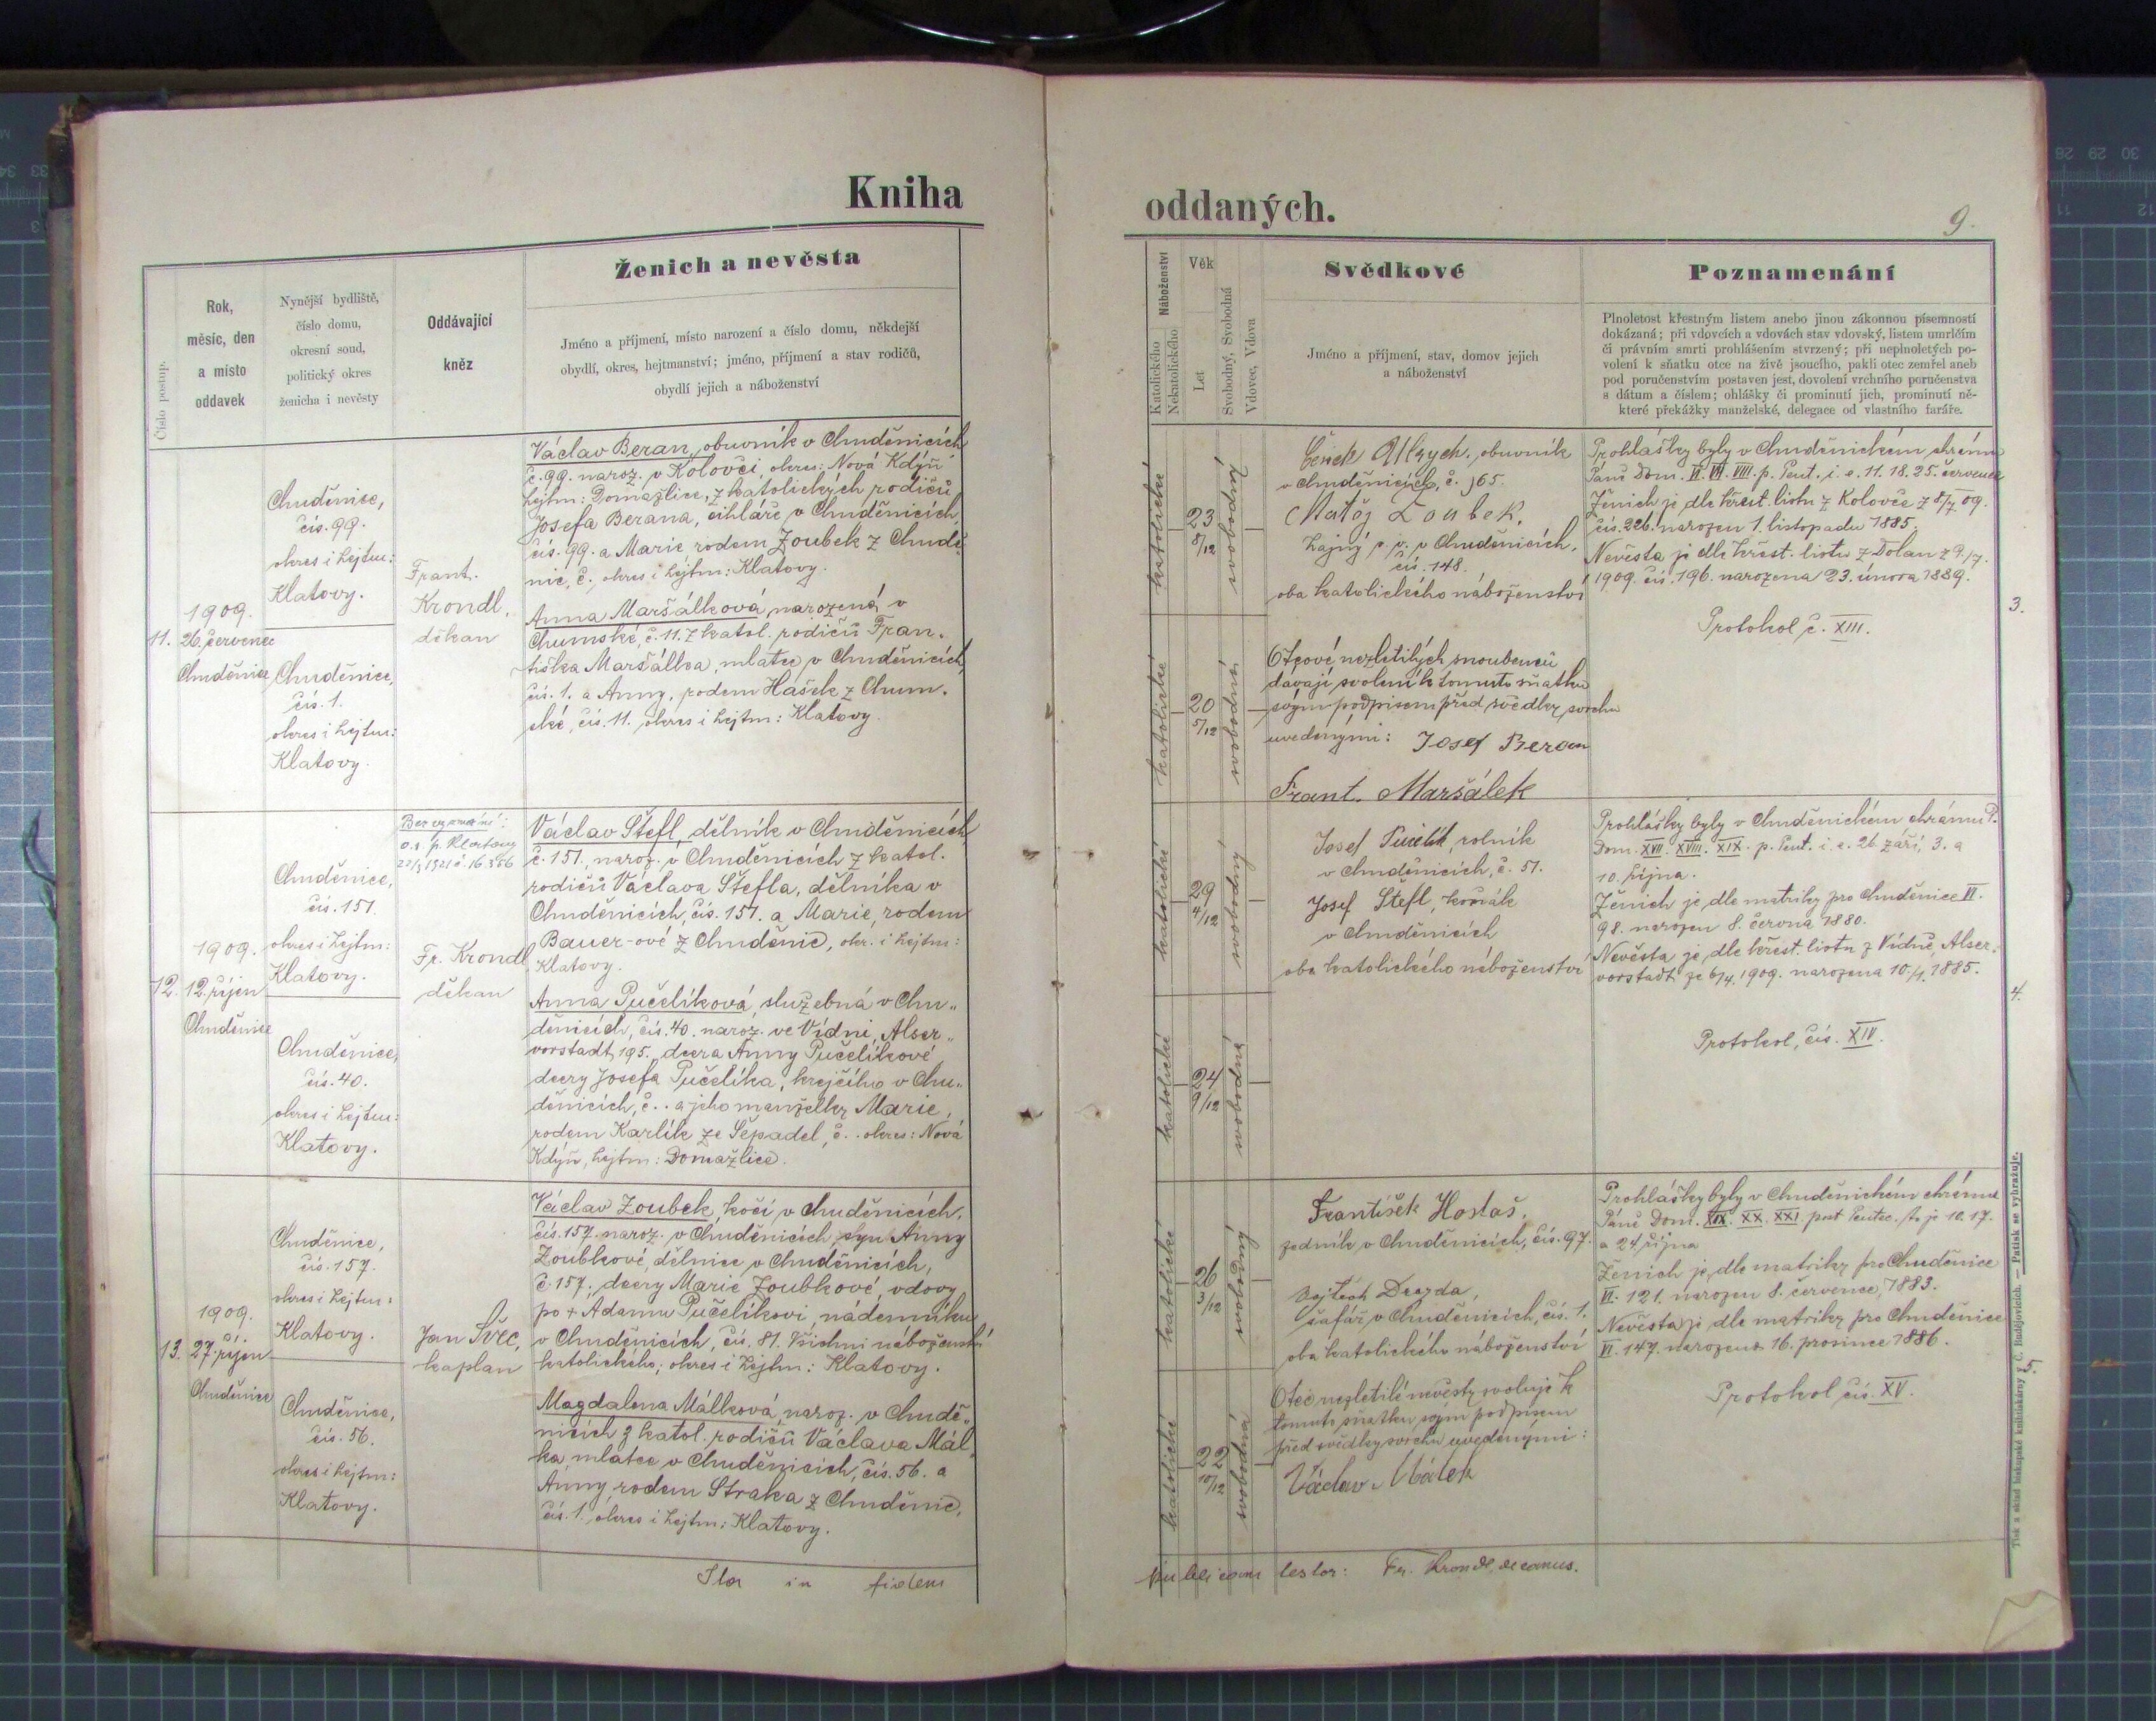 Kniha
oddaných.
9.
Číslo postup.
Rok,
měsíc, den
a místo
oddavek
Nynější bydliště,
číslo domu,
okresní soud,
politický okres
ženicha i nevěsty
Oddávající
kněz
Ženich a nevěsta
Jméno a příjmení, místo narození a číslo domu, někdejší
obydlí, okres, hejtmanství; jméno, příjmení a stav rodičů,
obydlí jejich a náboženství
Náboženství
Katolického
Nekatolického
Věk
Let
Svobodný, Svobodná
Vdovec, Vdova
Svědkové
Jméno a příjmení, stav, domov jejich
a náboženství
Poznamenání
Plnoletost křestným listem anebo jinou zákonnou písemností
dokázaná; při vdovcích a vdovách stav vdovský, listem umrlčím
či právním smrti prohlášením stvrzený; při neplnoletých po-
volení k sňatku otce na živě jsoucího, pakli otec zemřel aneb
pod poručenstvím postaven jest, dovolení vrchního poručenstva
s dátum a číslem; ohlášky či prominutí jich, prominutí ně-
které překážky manželské, delegace od vlastního faráře.
11.
1909.
26. červenec
Chuděnice
Chuděnice,
čís. 99.
okres i hejtm:
Klatovy.
Chuděnice,
čís. 1.
okres i hejtm:
Klatovy.
Frant.
Krondl,
děkan
Václav Beran, obuvník v Chuděnicích
č. 99. naroz. v Kolovči, okres: Nová Kdýň
hejtm: Domažlice, z katolických rodičů
Josefa Berana, cihláře v Chuděnicích
čís. 99. a Marie rodem Zoubek z Chudě
nic, č. , okres i hejtm: Klatovy.
Anna Maršálková, narozená v
Chumské, č. 11. z katol. rodičů Fran.
tiška Maršálka, mlatce v Chuděnicích,
čís. 1. a Anny, rodem Hašek z Chum.
ské, čís. 11. okres i hejtm: Klatovy.
katolické
23
8/12
svobodný
katolické
20
5/12
svobodná
Čeněk obuvník
v Chuděnicích, č. 165.
Matěj Zoubek,
hajný v Chuděnicích,
čís. 148.
oba katolického náboženství
Otcové nezletilých snoubenců
dávají svolení k tomuto sňatku
svým podpisem před svědky svrchu
uvedenými: Josef Beran
Frant. Maršálek
Prohlášky byly v Chuděnickém chrámu
Páně Dom. VI. VII. VIII. p. Pent. i. e. 11. 18. 25. července
Ženich je dle křest. listu z Kolovče z 8/7 09.
čís. 226. narozen 1. listopadu 1885.
Nevěsta je dle křest. listu z Dolan z 9./7.
1909. čís. 196. narozena 23. února 1889.
Protokol č. XIII.
3.
12.
1909.
12. říjen
Chuděnice
Chuděnice,
čís. 151.
okres i hejtm:
Klatovy.
Chuděnice,
čís. 40.
okres i hejtm:
Klatovy.
Bez vyznání:
o. s. p. Klatovy
Fr. Krondl
děkan
Václav Štefl, dělník v Chuděnicích
č. 151, naroz. v Chuděnicích z katol.
rodičů Václava Štefla, dělníka v
Chuděnicích, čís. 151. a Marie, rodem
Bauer-ové z Chuděnic, okr. i hejtm:
Klatovy.
Anna Pučelíková, služebná v Chu„
děnicích, čís. 40. naroz. ve Vídni, Alser„
vorstadt, 195. dcera Anny Pučelíkové
dcery Josefa Pučelíka, krejčího v Chu„
děnicích, č. . a jeho manželky Marie,
rodem Karlík ze Sepadel, č. . okres: Nová
Kdýň, hejtm: Domažlice.
katolické
29
4/12
svobodný
katolické
24
9/12
svobodná
Josef rolník
v Chuděnicích, č. 51.
Josef Štefl,
v Chuděnicích
oba katolického náboženství
Prohlášky byly v Chuděnickém chrámu P.
Dom. XVII. XVIII. XIX. p. Pent. i. e. 26. září, 3. a
10. října.
Ženich je dle matriky pro Chuděnice VI.
98. narozen 8. června 1880.
Nevěsta je dle křest. listu z Vídně, Alser„
vorstadt ze 6/4. 1909. narozena 10./1. 1885.
Protokol, čís. XIV.
4.
13.
1909.
27. říjen
Chuděnice
Chuděnice,
čís. 157.
okres i hejtm:
Klatovy.
Chuděnice,
čís. 56.
okres i hejtm:
Klatovy.
Jan Švec,
kaplan
Václav Zoubek, kočí v Chuděnicích,
čís. 157. naroz. v Chuděnicích, syn Anny
Zoubkové, dělnice v Chuděnicích,
č. 157, dcery Marie Zoubkové, vdovy
po + Adamu Pučelíkovi, nádeníku
v Chuděnicích, čís. 81. Všichni náboženství
katolického; okres i hejtm: Klatovy.
Magdalena Málková, naroz. v Chudě„
nicích z katol. rodičů Václava Mál„
ka, mlatce v Chuděnicích, čís. 56. a
Anny rodem Straka z Chuděnic,
čís. 1. okres i hejtm: Klatovy.
katolické
26
3/12
svobodný
katolické
22
10/12
svobodná
František Hostaš,
zedník v Chuděnicích, čís. 97.
Vojtěch Drozda,
šafář v Chuděnicích, čís. 1.
oba katolického náboženství
Otec nezletilé nevěsty svoluje k
tomuto sňatku svým podpisem
před svědky svrchu uvedenými:
Václav Málek
Prohlášky byly v Chuděnickém chrámu
Páně Dom. XIX. XX. XXI. post Pentec. to je 10. 17.
a 24 října
Ženich je dle matriky pro Chuděnice
VI. 121. narozen 8. července, 1883.
Nevěsta je dle matriky pro Chuděnice
VI. 147. narozena 16. prosince 1886.
Protokol čís. XV.
5.
Ita in fidem
publicam testor: Fr. Krondl, decanus.
Tisk a sklad biskupské knihtiskárny v Č. Budějovicích. — Patisk se vyhražuje.